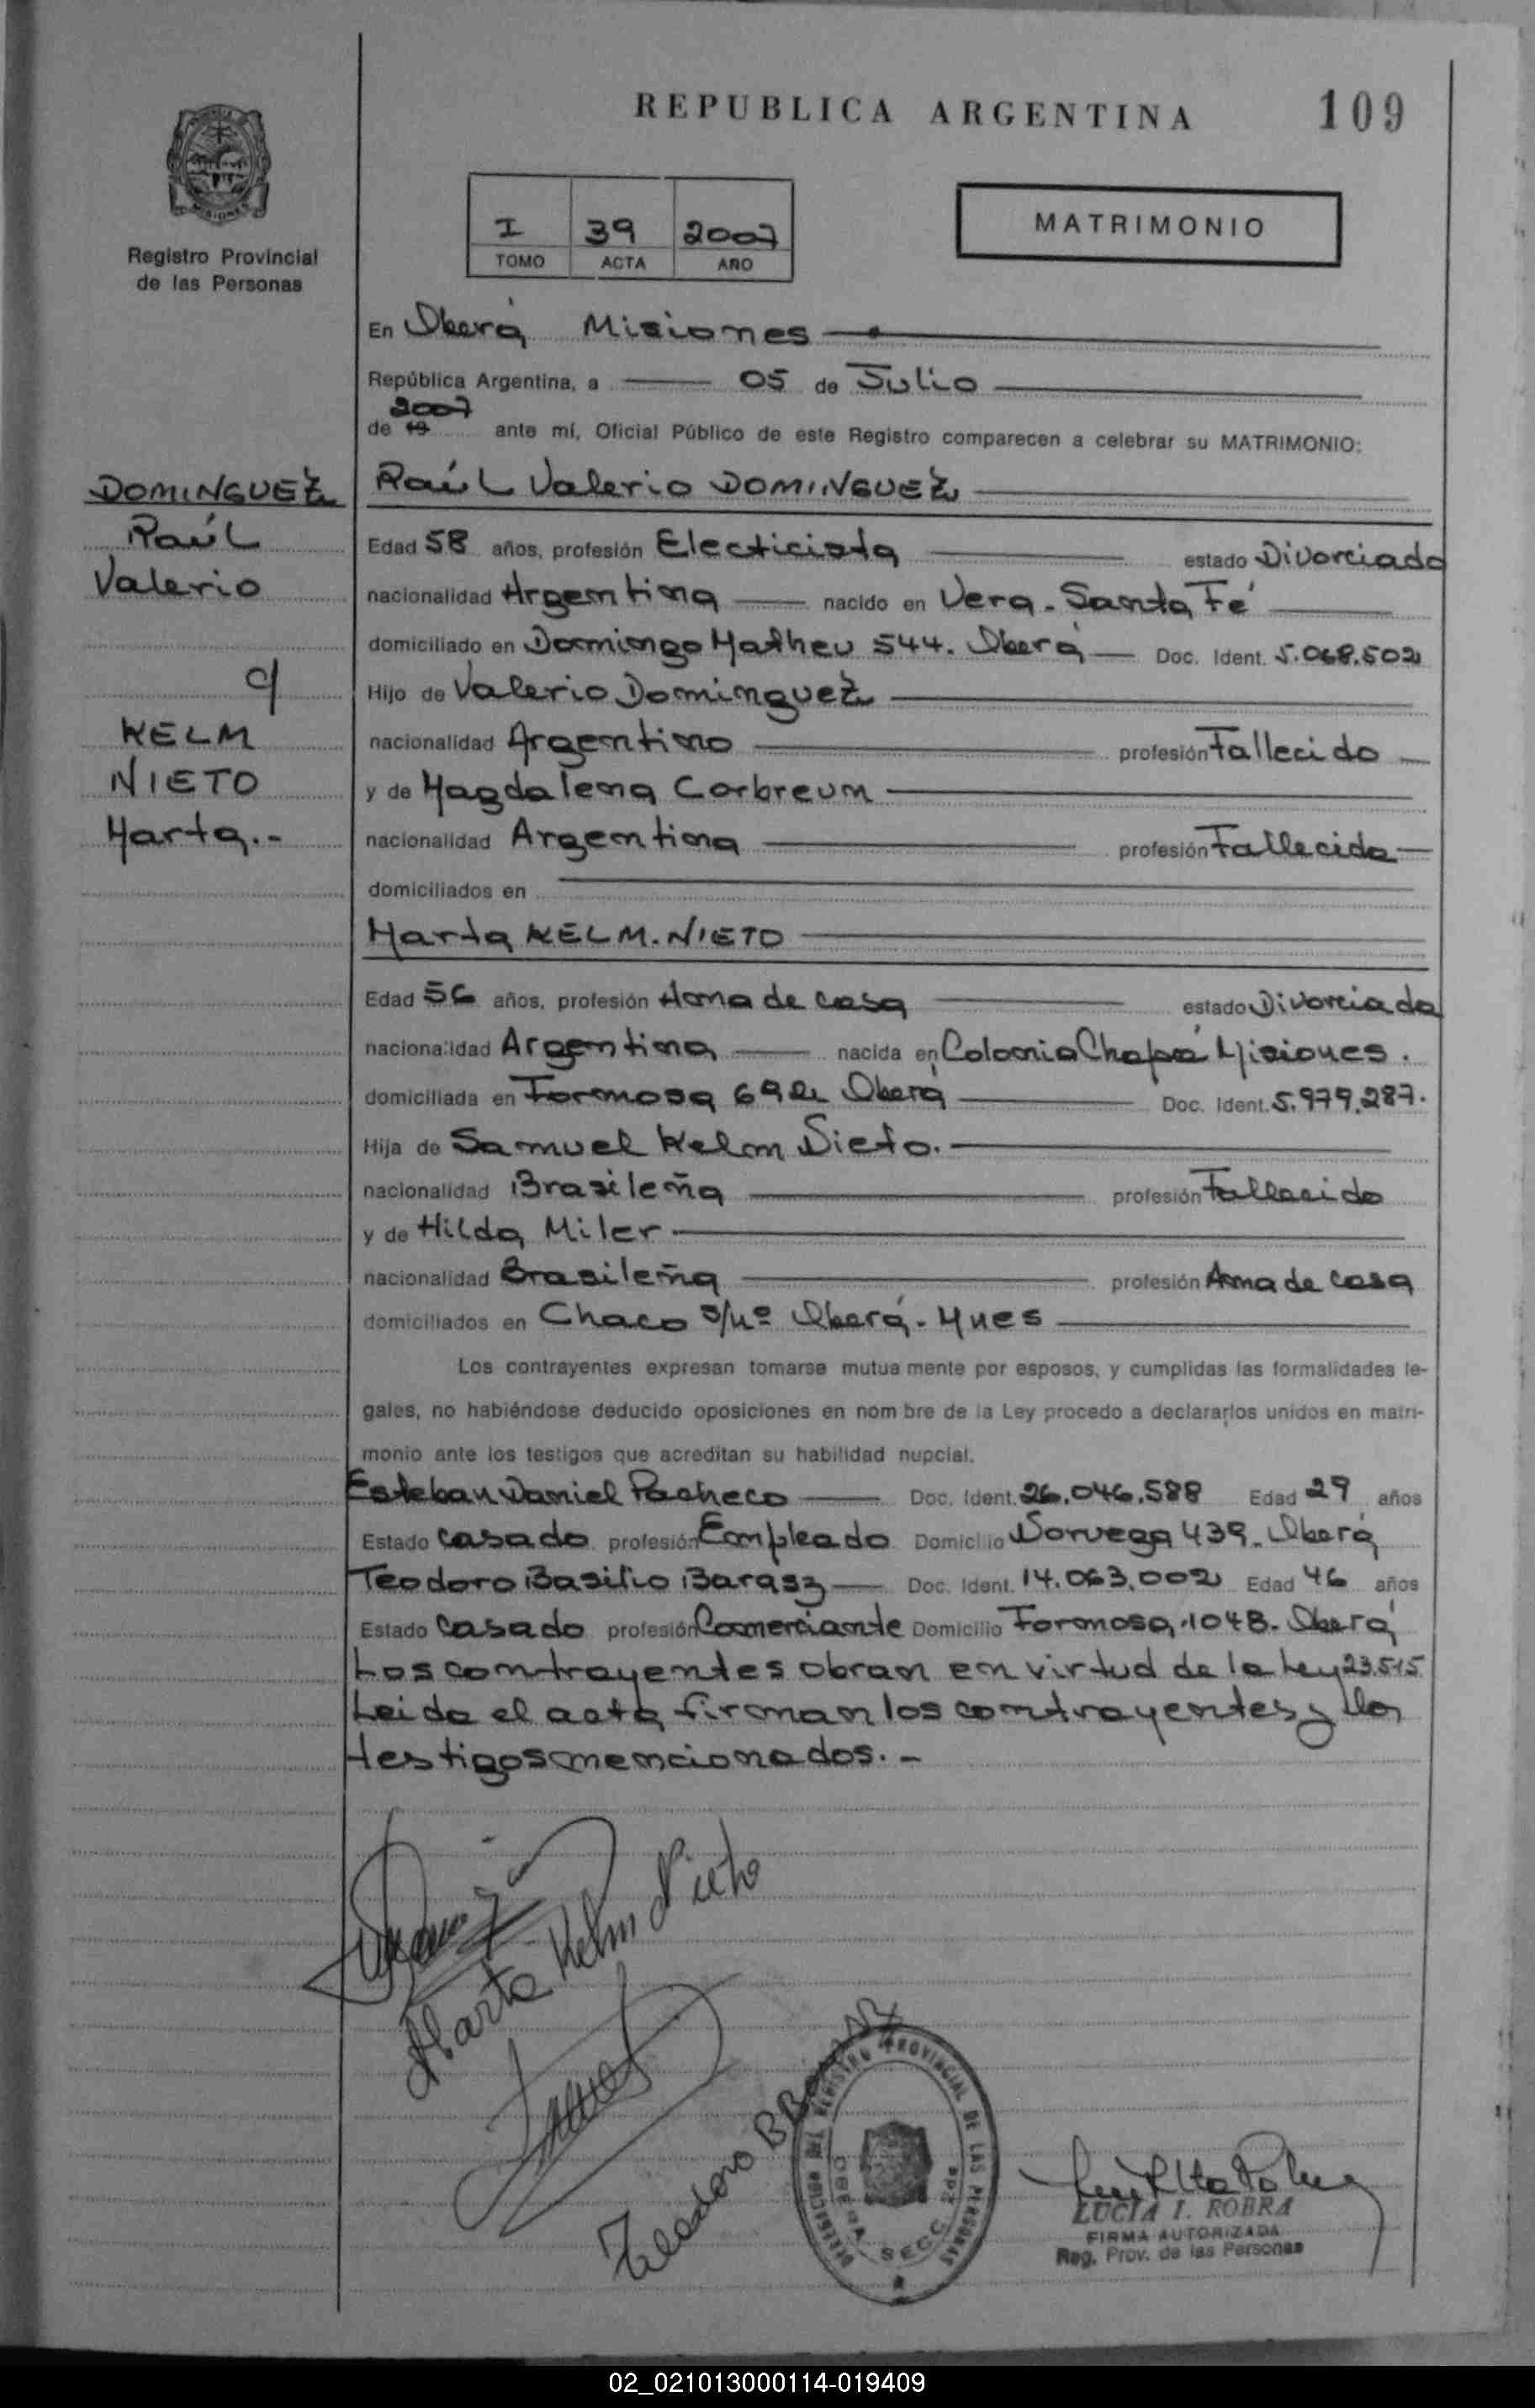 REPUBLICA ARGENTINA
109
Registro Provincial
de las Personas
I 39 2007
TOMO ACTA AÑO
MATRIMONIO
En Oberá Misiones
República Argentina, a 05 de Julio
2007
de 19 ante mí, Oficial Público de este Registro comparecen a celebrar su MATRIMONIO:
DOMINGUEZ
Raúl
Valerio
c/
KELM
NIETO
Marta.-
Raúl Valerio DOMINGUEZ
Edad 58 años, profesión Electicista estado Divorciado
nacionalidad Argentina nacido en Vera - Santa Fé
domiciliado en Domingo Matheu 544. Oberá Doc. Ident. 5.068.502
Hijo de Valerio Dominguez
nacionalidad Argentino profesión Fallecido
y de Magdalena Corbreum
nacionalidad Argentina profesión Fallecida
domiciliados en
Marta KELM.NIETO
Edad 56 años, profesión Ama de casa estado Divorciada
nacionalidad Argentina nacida en Colonia Chapá Misiones.
domiciliada en Formosa 692 Oberá Doc. Ident. 5.979.287.
Hija de Samuel Kelm Nieto.
nacionalidad Brasileña profesión Fallecido
y de Hilda Miler
nacionalidad Brasileña profesión Ama de casa
domiciliados en Chaco s/nº Oberá. Mnes
Los contrayentes expresan tomarse mutua mente por esposos, y cumplidas las formalidades le-
gales, no habiéndose deducido oposiciones en nom bre de la Ley procedo a declararlos unidos en matri-
monio ante los testigos que acreditan su habilidad nupcial.
Esteban Daniel Pacheco Doc. Ident. 26.046.588 Edad 29 años
Estado Casado profesión Empleado Domicilio Noruega 439. Oberá
Teodoro Basilio Barasz Doc. Ident. 14.063.002 Edad 46 años
Estado Casado profesión Comerciante Domicilio Formosa 1048. Oberá
Los contrayentes obran en virtud de la Ley 23.515
Leida el acta firman los contrayentes y los
testigos mencionados.-
Marta Kelm Nieto
Teodoro
REGISTRO PROVINCIAL DE LAS PERSONAS
OBERA SECC.
LUCIA I. ROBRA
FIRMA AUTORIZADA
Reg. Prov. de las Personas
02_021013000114-019409